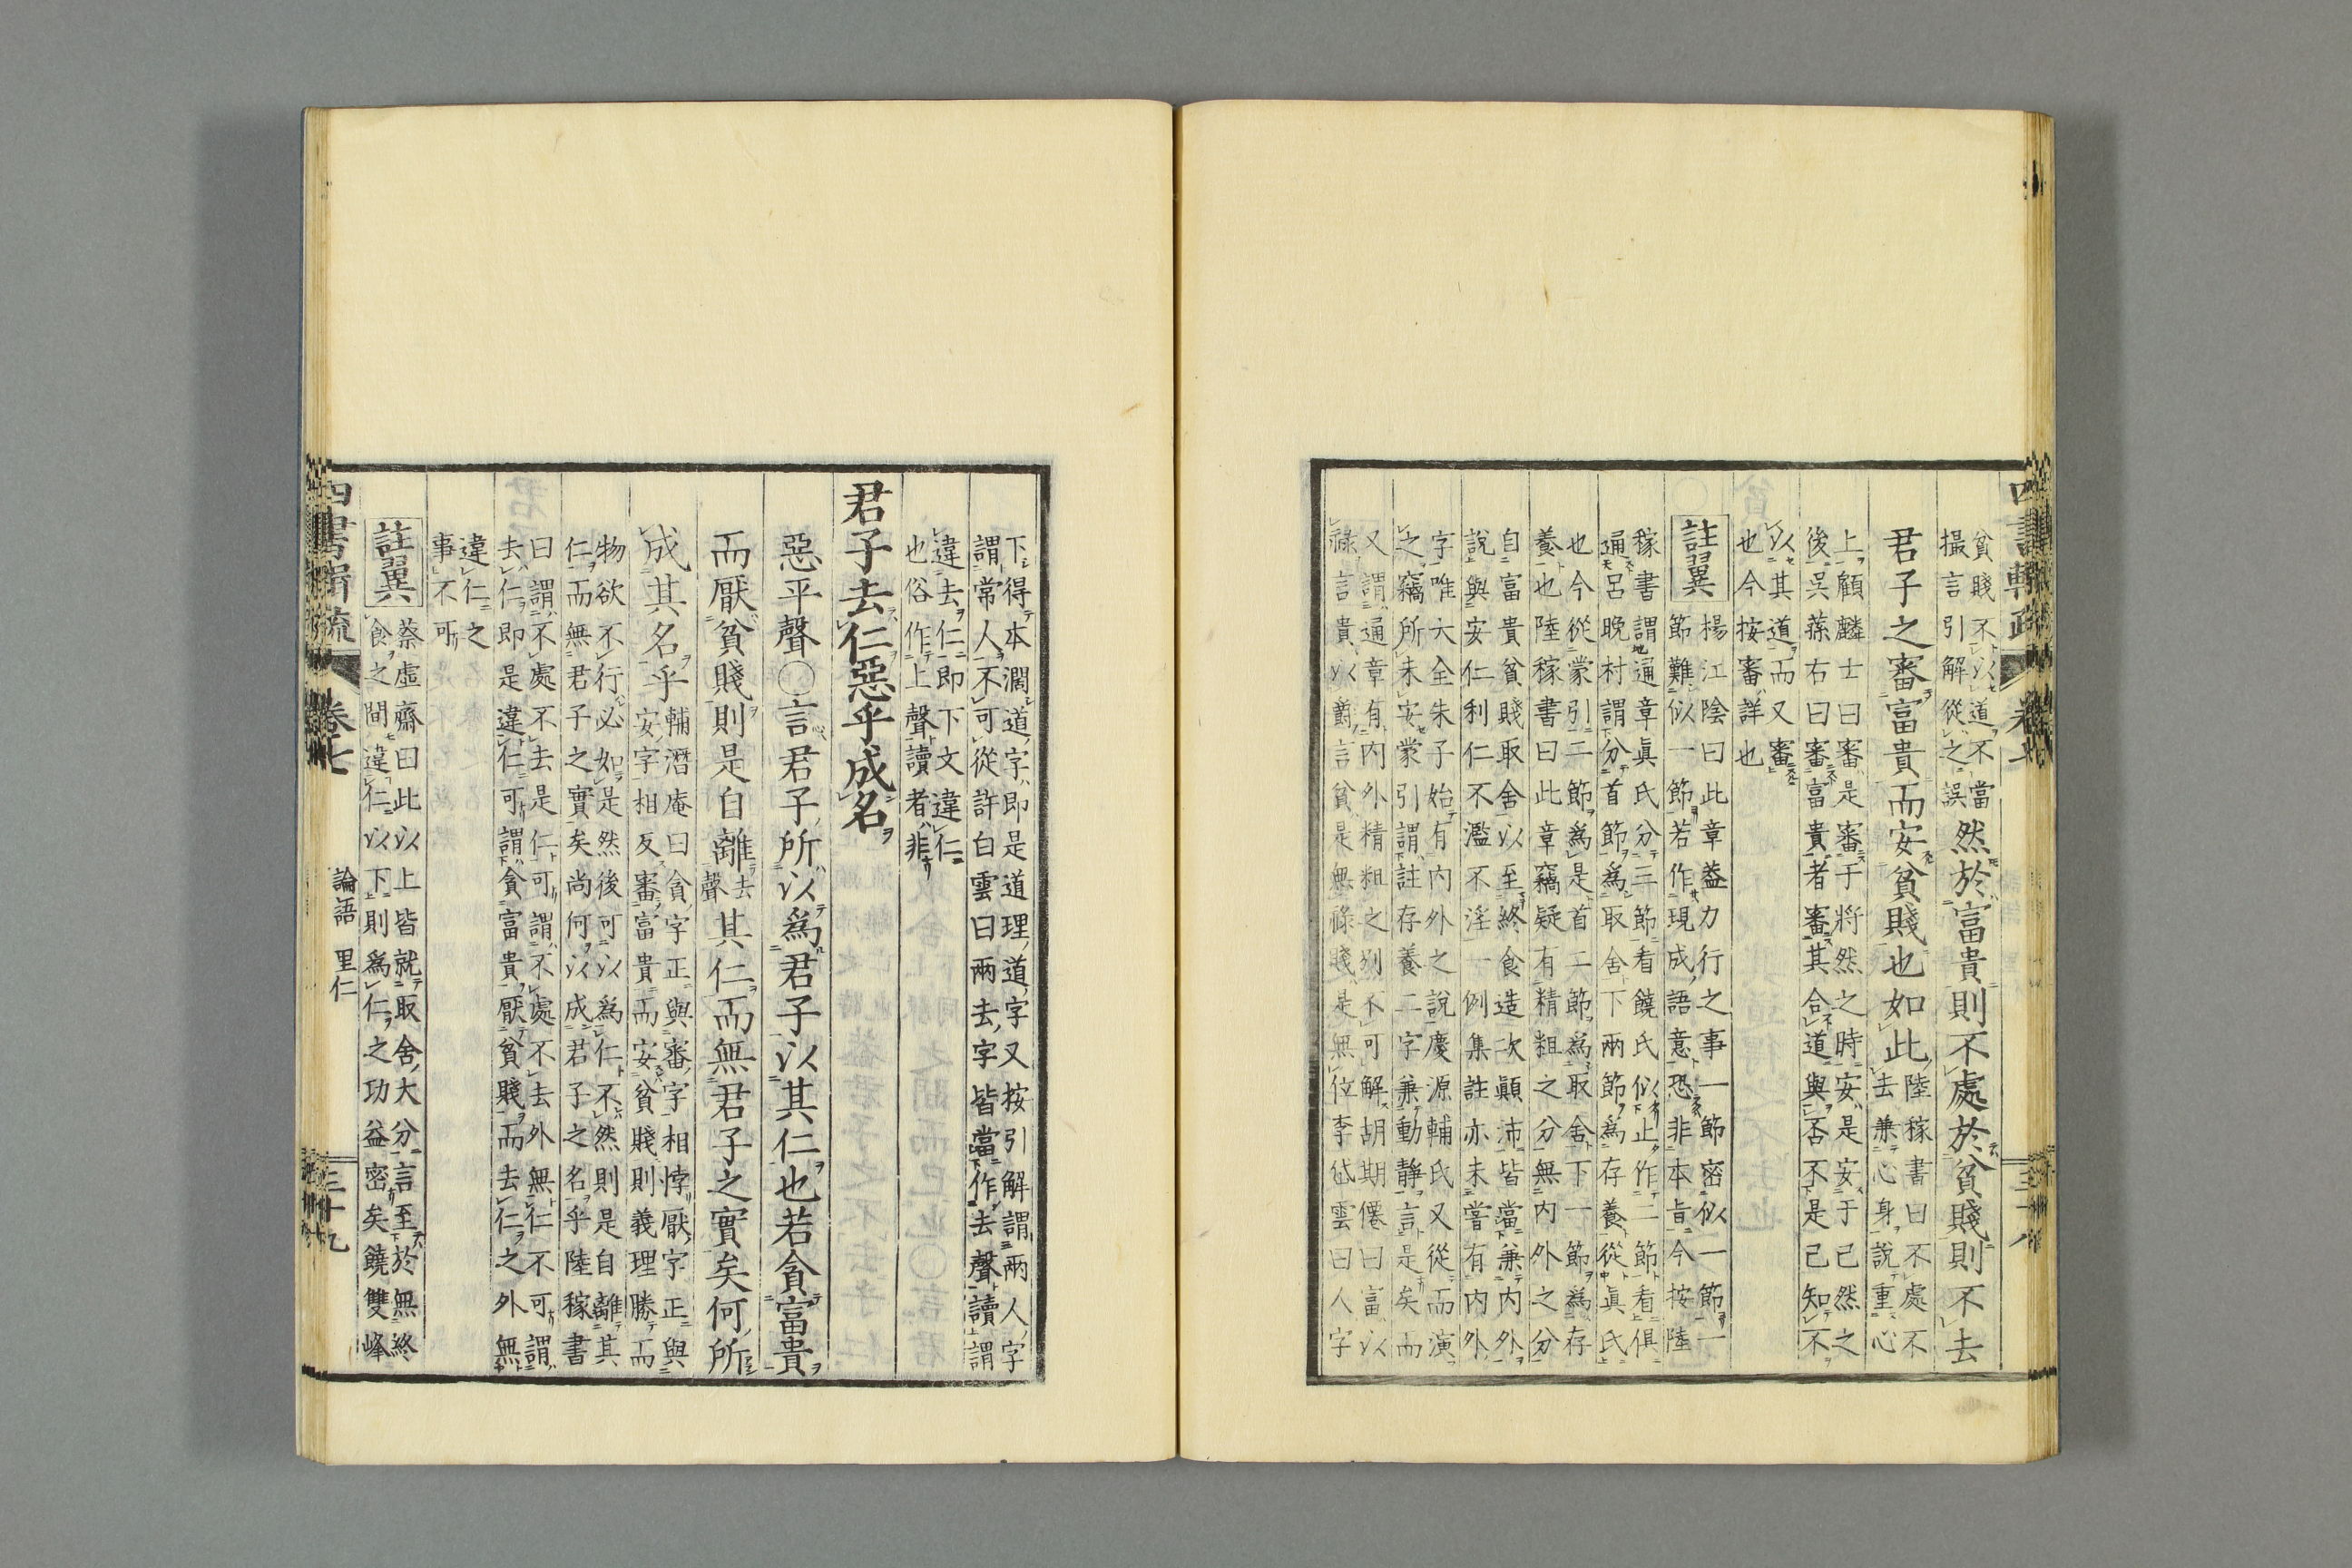 貧賤不以道不當
撮言引解從之誤
然於富貴則不處於貧賤則不去
君子之審富貴而安貧賤也如此
陸稼書曰不處不
去兼心身說重心
上顧麟士曰審是審于將然之時安是安于已然之
後吳蓀右曰審富貴者審其合道與否不是已知不
以其道而又審
也今按審詳也
註翼
楊江陰曰此章益力行之事一節密似一節一
節難似一節若作現成語意恐非本旨今按陸
稼書謂通章眞氏分三節看饒氏似止作二節看俱
通呂晩村謂分首節爲取舍下兩節爲存養從眞氏
也今從蒙引二節爲是首二節爲取舍下一節爲存
養也陸稼書曰此章竊疑有精粗之分無內外之分
自富貴貧賤取舍以至終食造次顚沛皆當兼內外
說與安仁利仁不濫不淫一例集註亦未嘗有內外
字唯大全朱子始有內外之說慶源輔氏又從而演
之竊所未安蒙引謂註存養二字兼動靜言是矣而
又謂通章有內外精粗之別不可解胡期僊曰富以
祿言貴以爵言貧是無祿賤是無位李岱雲曰人字
四書輯疏
卷七
下得本濶道字卽是道理道字又按引解謂兩人字
謂常人不可從許白雲曰兩去字皆當作去聲讀謂
違去仁卽下文違仁
也俗作上聲讀者非
君子去仁惡乎成名
惡平聲○言君子所以爲君子以其仁也若貪富貴
而厭貧賤則是自離去聲其仁而無君子之實矣何所
成其名乎
輔潛庵曰貪字正與審字相悖厭字正與
安字相反審富貴而安貧賤則義理勝而
物欲不行必如是然後可以爲仁不然則是自離其
仁而無君子之實矣尚何以成君子之名乎陸稼書
曰謂不處不去是仁可謂不處不去外無仁不可謂
去仁卽是違仁可謂貪富貴厭貧賤而去仁之外無
違仁之
事不可
註翼
蔡虛齋曰此以上皆就取舍大分言至於無終
食之間違仁以下則爲仁之功益密矣饒雙峰
四書輯疏
卷七
論語 里仁
三十九